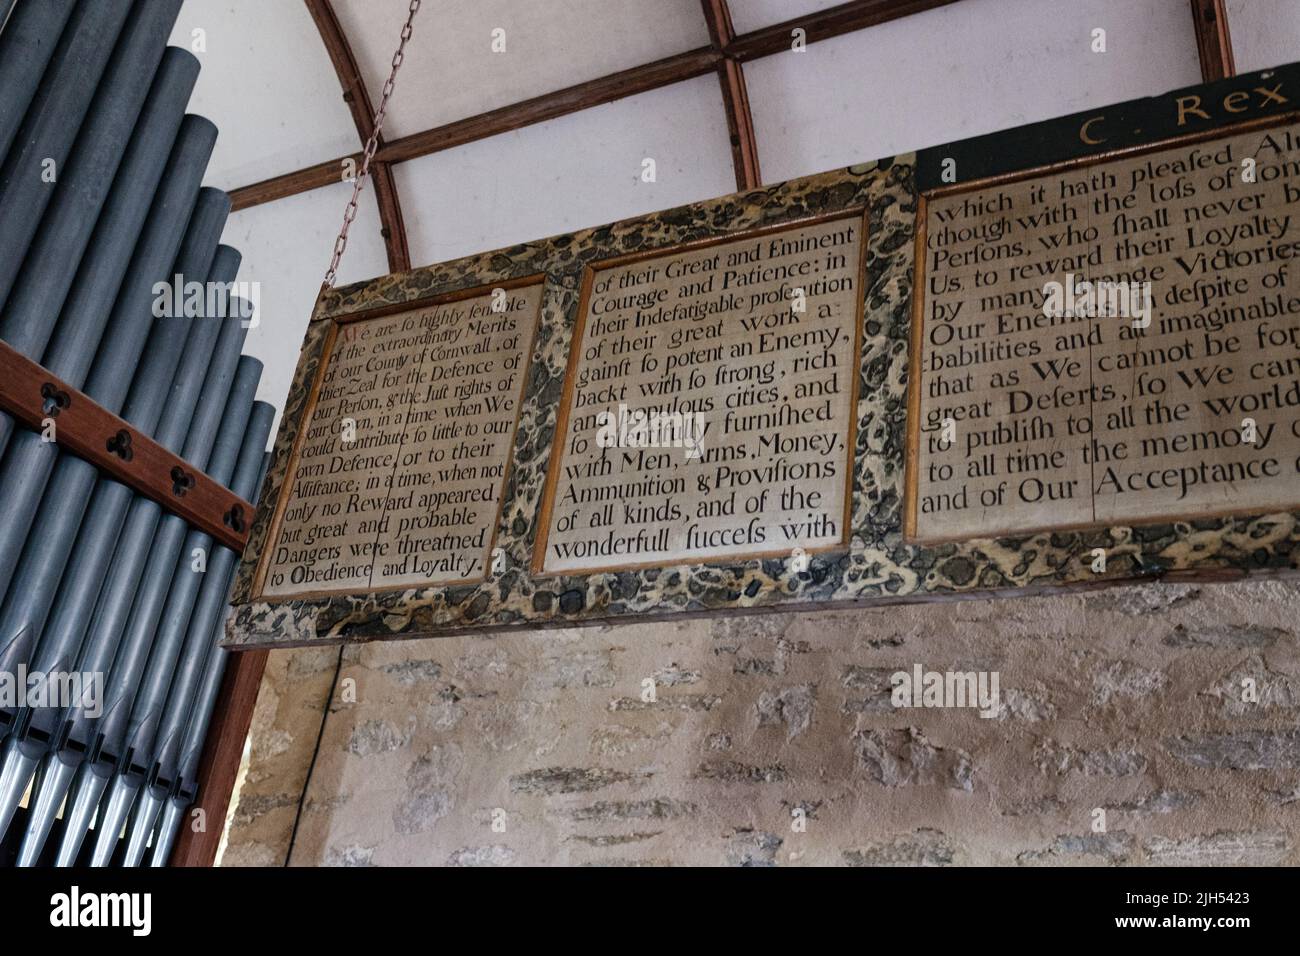 C. Rex
We are ſo highly ſenſible
of the extraordinary Merits
of our County of Cornwall, of
their Zeal for the Defence of
our Perſon, & the Juſt rights of
our Crown, in a time when We
could contribute ſo little to our
own Defence, or to their
Aſſiſtance; in a time, when not
only no Reward appeared,
but great and probable
Dangers were threatned
to Obedience and Loyalty.
of their Great and Eminent
Courage and Patience: in
their Indefatigable proſecution
of their great work a-
gainſt ſo potent an Enemy,
backt with ſo ſtrong, rich
and populous cities, and
ſo plentifully furniſhed
with Men, Arms, Money,
Ammunition & Proviſions
of all kinds, and of the
wonderfull ſucceſs with
which it hath pleaſed
(though with the loſs of
Perſons, who ſhall never
Us, to reward their Loyalty
by many ſtrange Victories
Our Enemies, in deſpite of
babilities and an imaginable
that as We cannot be
great Deſerts, ſo We can
to publiſh to all the world
to all time the memory
and of Our Acceptance
alamy
alamy
Image ID: 2JH5423
www.alamy.com